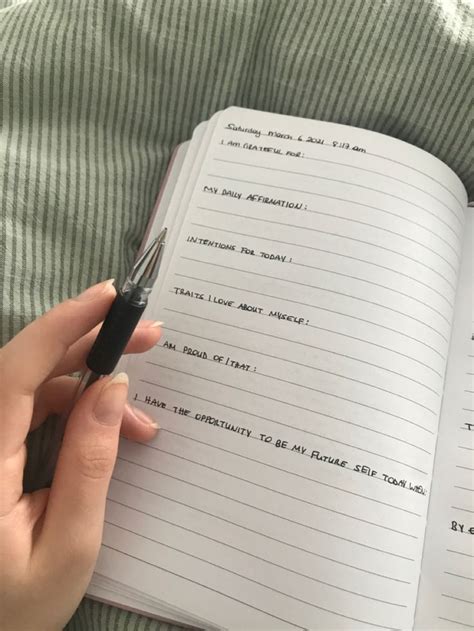 Saturday March 6 2021 8:17 am
I AM GRATEFUL FOR:
MY DAILY AFFIRMATION:
INTENTIONS FOR TODAY:
TRAITS I LOVE ABOUT MYSELF:
I AM PROUD OF/THAT:
I HAVE THE OPPORTUNITY TO BE MY FUTURE SELF TODAY WHEN:
T
BY